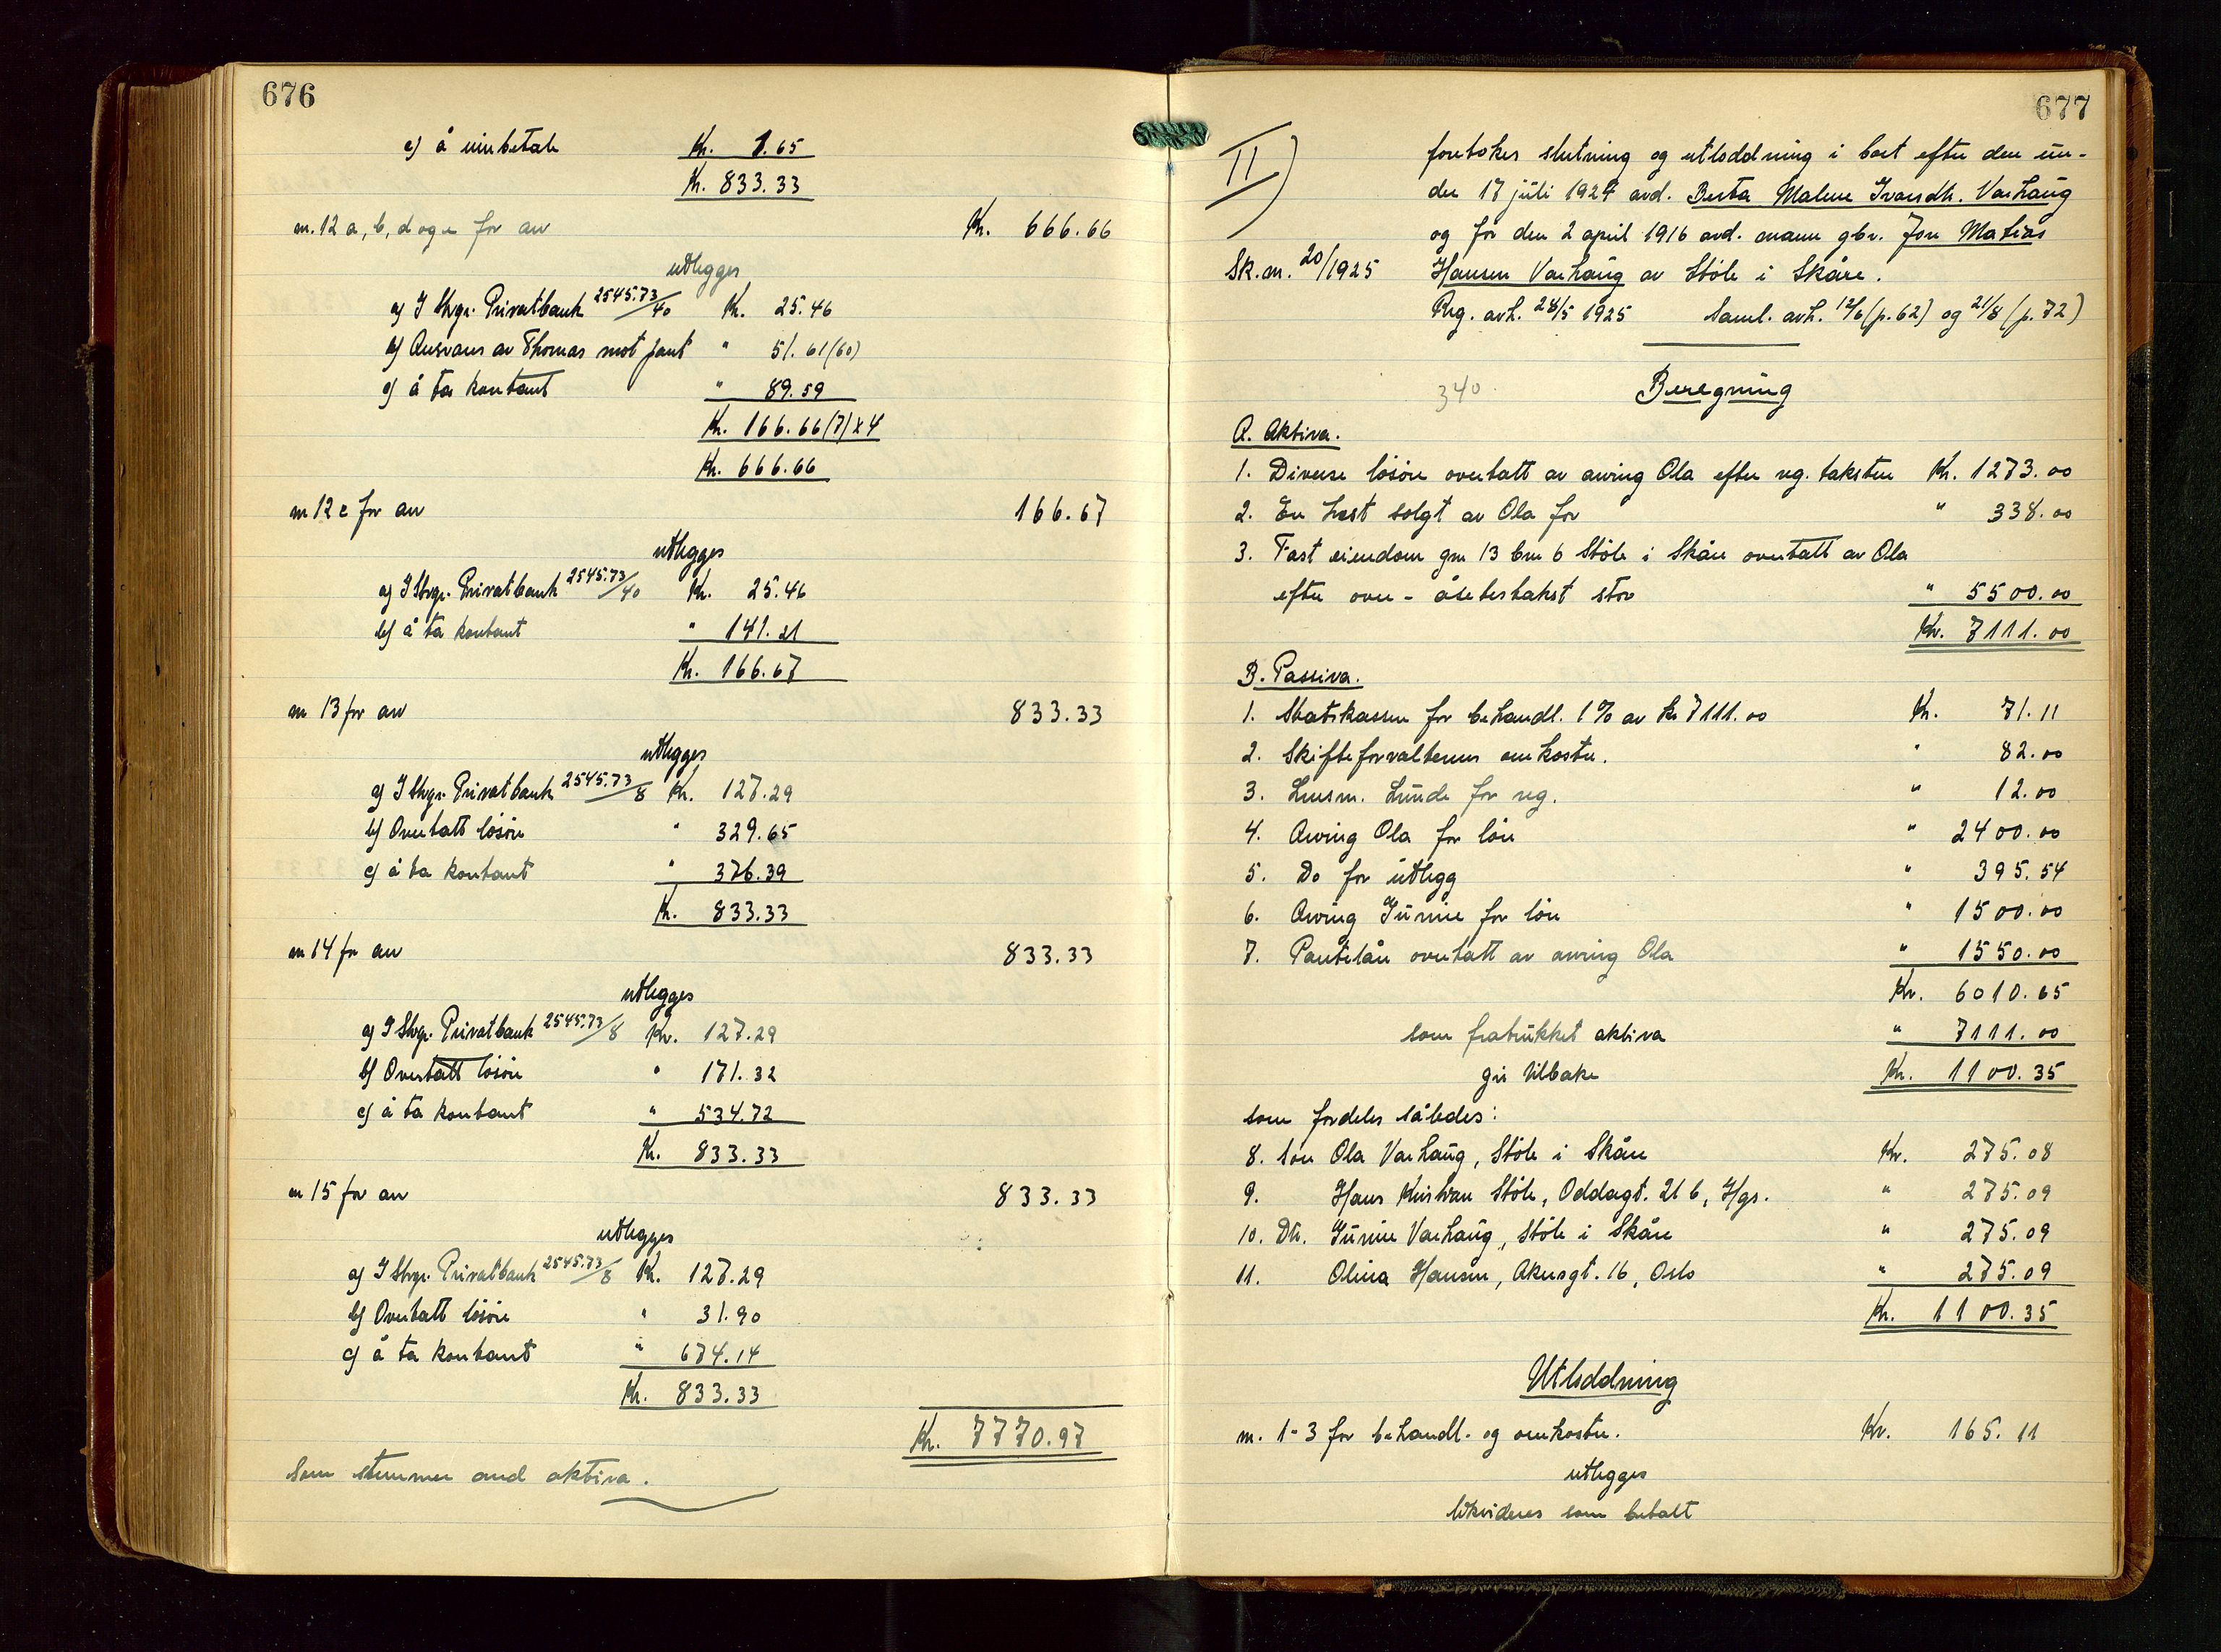 676
c) å innbetale Kr. 1.65
Kr. 833.33
nr. 12 a, b, d og e for arv Kr. 666.66
utlegges
a) I Hvgs. Privatbank 2545.73/40 Kr. 25.46
b) Ansvans av Thomas mot pant " 51.61(60)
c) å ta kontant " 89.59
Kr. 166.66(7)x4
Kr. 666.66
nr 12 c for arv 166.67
utlegges
a) I Hvgs. Privatbank 2545.73/40 Kr. 25.46
b) å ta kontant " 141.21
Kr. 166.67
nr 13 for arv 833.33
utlegges
a) I Hvgs. Privatbank 2545.73/8 Kr. 127.29
b) Overtatt lösöre " 329.65
c) å ta kontant " 376.39
Kr. 833.33
nr 14 for arv 833.33
utlegges
a) I Hvgs. Privatbank 2545.73/8 Kr. 127.29
b) Overtatt lösöre " 171.32
c) å ta kontant " 534.72
Kr. 833.33
nr 15 for arv 833.33
utlegges
a) I Hvgs. Privatbank 2545.73/8 Kr. 127.29
b) Overtatt lösöre " 31.90
c) å ta kontant " 674.14
Kr. 833.33
Kr. 7770.97
som stemmer med aktiva.
677
II)
foretokes slutning og utloddning i boet efter den un-
der 17 juli 1924 avd. Berta Malene Ivarsdtr. Varhaug
og for den 2 april 1916 avd. mann gbr. Jon Matias
Sk.nr. 20/1925 Hansen Varhaug av Stöle i Skåre.
Reg. avh. 28/5 1925 Saml. avh. 12/6 (p. 62) og 21/8 (p. 72)
340 Beregning
A. Aktiva.
1. Diverse lösöre overtatt av arving Ola efter reg. taksten Kr. 1273.00
2. En hest solgt av Ola for " 338.00
3. Fast eiendom gnr 13 bnr 6 Stöle i Skåre overtatt av Ola
efter over- åsetestakst stor " 5500.00
Kr. 7111.00
B. Passiva.
1. Statskassen for behandl. 1% av kr 7111.00 Kr. 71.11
2. Skifteforvalterens omkostn. " 82.00
3. Lensm. Lunde for reg. " 12.00
4. Arving Ola for lön " 2400.00
5. Do for utlegg " 395.54
6. Arving Gunnie for lön " 1500.00
7. Pantelån overtatt av arving Ola " 1550.00
Kr. 6010.65
som fratrukket aktiva " 7111.00
gir tilbake Kr. 1100.35
som fordeles således:
8. Sön Ola Varhaug, Stöle i Skåre Kr. 275.08
9. Hans Kristian Stöle, Oddagt. 216, Hgs. " 275.09
10. Dtr. Gunnie Varhaug, Stöle i Skåre " 275.09
11. Olina Hansen, Akersgt. 16, Oslo " 275.09
Kr. 1100.35
Utloddning
nr. 1-3 for behandl. og omkostn. Kr. 165.11
utlegges
likvideres som betalt